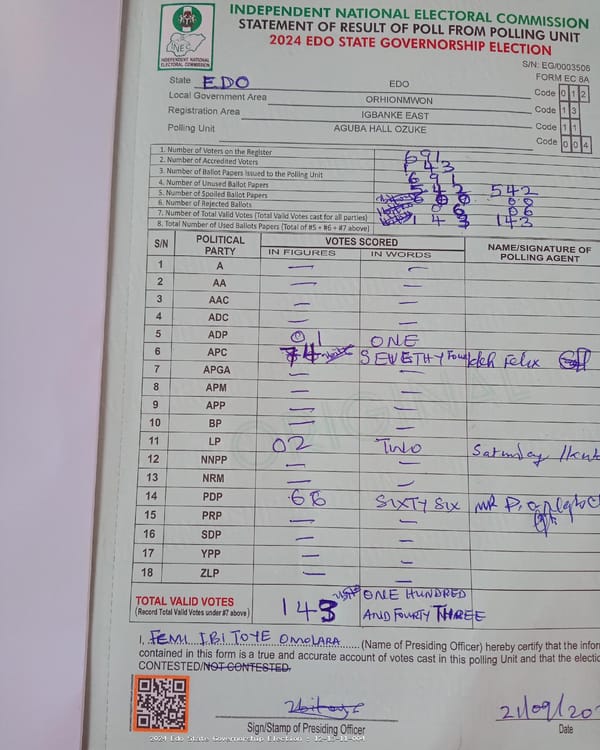 INDEPENDENT NATIONAL ELECTORAL COMMISSION
STATEMENT OF RESULT OF POLL FROM POLLING UNIT
2024 EDO STATE GOVERNORSHIP ELECTION
INEC
INDEPENDENT NATIONAL ELECTORAL COMMISSION
S/N: EG/0003506
FORM EC 8A
State EDO EDO Code 012
Local Government Area ORHIONMWON Code 13
Registration Area IGBANKE EAST Code 11
Polling Unit AGUBA HALL OZUKE Code 004
1. Number of Voters on the Register 691
2. Number of Accredited Voters 143
3. Number of Ballot Papers Issued to the Polling Unit 691
4. Number of Unused Ballot Papers 542 542
5. Number of Spoiled Ballot Papers 00
6. Number of Rejected Ballots 06
7. Number of Total Valid Votes (Total Valid Votes cast for all parties) 143 143
8. Total Number of Used Ballots Papers (Total of #5 + #6 + #7 above)
S/N POLITICAL PARTY VOTES SCORED NAME/SIGNATURE OF POLLING AGENT
IN FIGURES IN WORDS
1 A — —
2 AA — —
3 AAC — —
4 ADC — —
5 ADP 01 ONE
6 APC 74 SEVETHY Four Felix
7 APGA — —
8 APM — —
9 APP — —
10 BP — —
11 LP 02 TWO Saturday
12 NNPP — —
13 NRM — —
14 PDP 66 SIXTY SIX MR
15 PRP — —
16 SDP — —
17 YPP — —
18 ZLP — —
TOTAL VALID VOTES 143 ONE HUNDRED
(Record Total Valid Votes under #7 above) AND FOURTY THREE
I, FEMI IBITOYE OMOLARA (Name of Presiding Officer) hereby certify that the infor
contained in this form is a true and accurate account of votes cast in this polling Unit and that the electio
CONTESTED/NOT CONTESTED.
Sign/Stamp of Presiding Officer
21/09/20
Date
2024 Edo State Governorship Election - 12-13-11-004
ORIGINAL